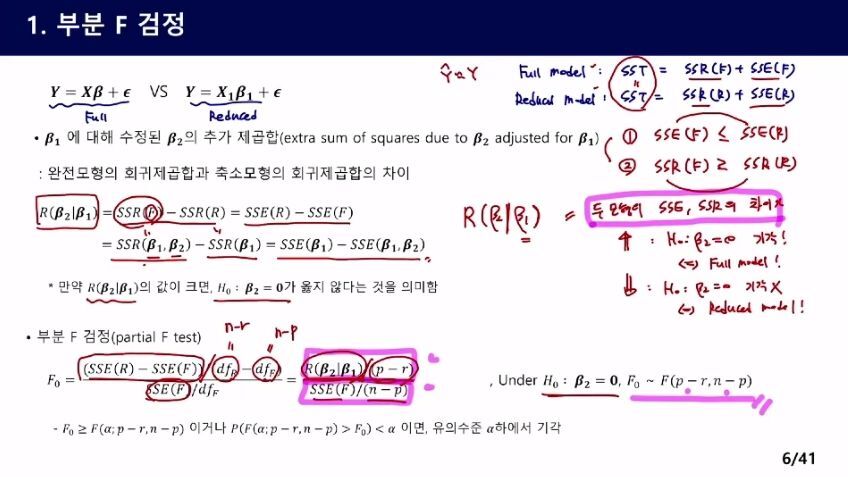 1. 부분 F 검정
Y = Xβ + ϵ VS Y = X₁β₁ + ϵ
Full Reduced
Ŷ ≈ Y
Full model : SST = SSR(F) + SSE(F)
Reduced model : SST = SSR(R) + SSE(R)
① SSE(F) ≤ SSE(R)
② SSR(F) ≥ SSR(R)
• β₁ 에 대해 수정된 β₂의 추가 제곱합(extra sum of squares due to β₂ adjusted for β₁)
: 완전모형의 회귀제곱합과 축소모형의 회귀제곱합의 차이
R(β₂|β₁) = SSR(F) − SSR(R) = SSE(R) − SSE(F)
= SSR(β₁, β₂) − SSR(β₁) = SSE(β₁) − SSE(β₁, β₂)
R(β₂|β₁) = 두 모형의 SSE, SSR의 차이
↑ : H₀ : β₂ = 0 기각!
⇔ Full model!
↓ : H₀ : β₂ = 0 기각 X
⇔ Reduced model!
* 만약 R(β₂|β₁)의 값이 크면, H₀ : β₂ = 0가 옳지 않다는 것을 의미함
• 부분 F 검정(partial F test)
n-r n-p
F₀ = (SSE(R) − SSE(F))/(df_R − df_F) / SSE(F)/df_F = R(β₂|β₁)/(p − r) / SSE(F)/(n − p) , Under H₀ : β₂ = 0, F₀ ~ F(p − r, n − p)
- F₀ ≥ F(α; p − r, n − p) 이거나 P(F(α; p − r, n − p) > F₀) < α 이면, 유의수준 α하에서 기각
6/41